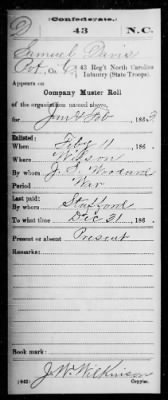 (Confederate.)
D 43 N.C.
Samuel Davis
Pvt, Co. 43 Reg't North Carolina
Infantry (State Troops).
Appears on
Company Muster Roll
of the organization named above,
for Jan & Feb, 1863
Enlisted:
When Feby 11, 186
Where Wilson
By whom J. S. Woodard
Period War
Last paid:
By whom Stafford
To what time Dec 31, 186
Present or absent Present
Remarks:
Book mark:
J. W. Wilkinson
(642) Copyist.